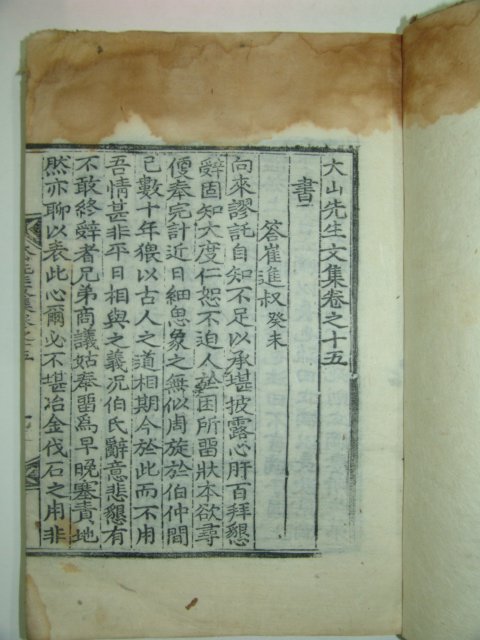 大山先生文集卷之十五
書
答崔進叔 癸未
向來謬託自知不足以承堪披露心肝百拜懇
辭固知大度仁恕不迫人於困所留狀本欲尋
便奉完計近日細思象之無似周旋於伯仲間
已數十年猥以古人之道相期今於此而不用
吾情甚非平日相與之義况伯氏辭意悲懇有
不敢終辭者兄弟商議姑奉留爲早晚塞責地
然亦聊以表此心爾必不堪冶金伐石之用非